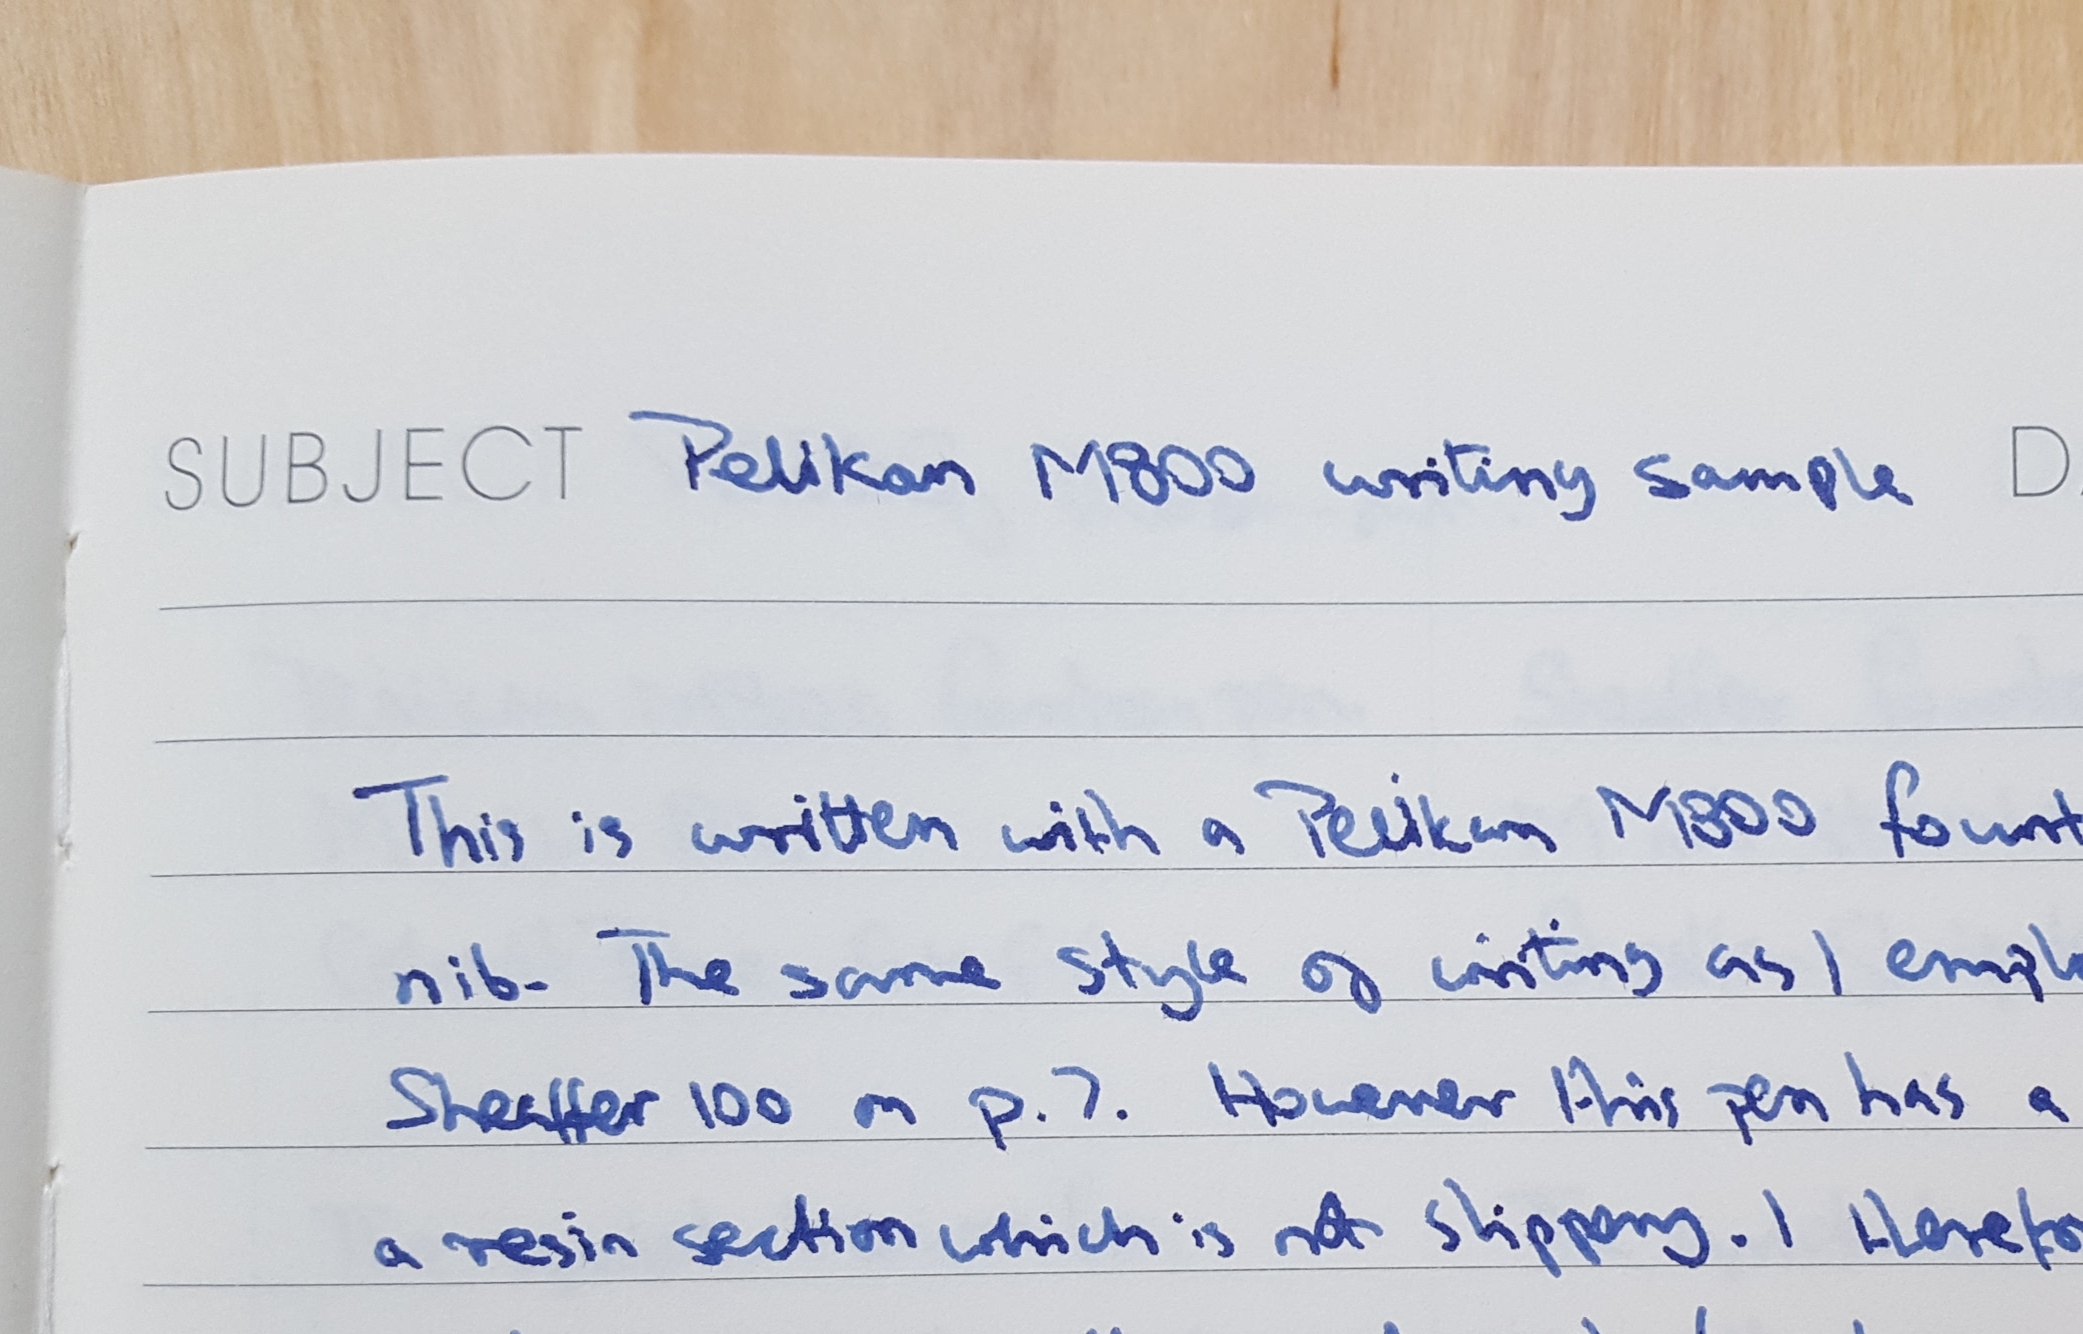 SUBJECT Pelikan M800 writing sample D
This is written with a Pelikan M800 fount
nib. The same style of writing as I emplo
Sheaffer 100 on p.7. However this pen has a
a resin section which is not slippery. I therefo